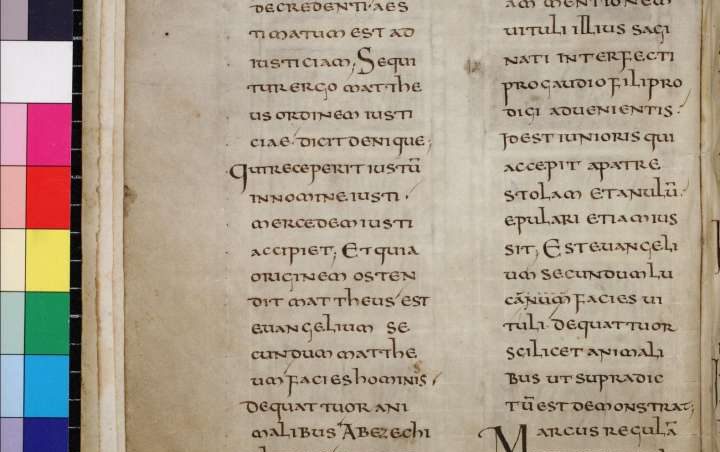 DECREDENTI·AES
TIMATUM EST AD
IUSTICIAM; SEQUI
TUR ERGO MATTHE
US ORDINEM IUSTI
CIAE· DICIT DENIQUE;
QUI RECEPERIT IUSTŪ
IN NOMINE IUSTI·
MERCEDEM IUSTI
ACCIPIET; ET QUIA
ORIGINEM OSTEN
DIT MATTHEUS EST
EUANGELIUM SE
CUNDUM MATTHE
UM FACIES HOMINIS
DE QUATTUOR ANI
MALIBUS ABEZECHI
AM MENTIONEM
UITULI ILLIUS SAGI
NATI INTERFECTI
PRO GAUDIO FILI PRO
DIGI ADUENIENTIS·
ID EST IUNIORIS QUI
ACCEPIT A PATRE
STOLAM ET ANULŪ·
EPULARI ETIAM IUS
SIT; EST EUANGELI
UM SECUNDUM LU
CĀNUM FACIES UI
TULI· DE QUATTUOR
SCILICET ANIMALI
BUS UT SUPRADIC
TŪ EST DEMONSTRAT;
MARCUS REGULĀ